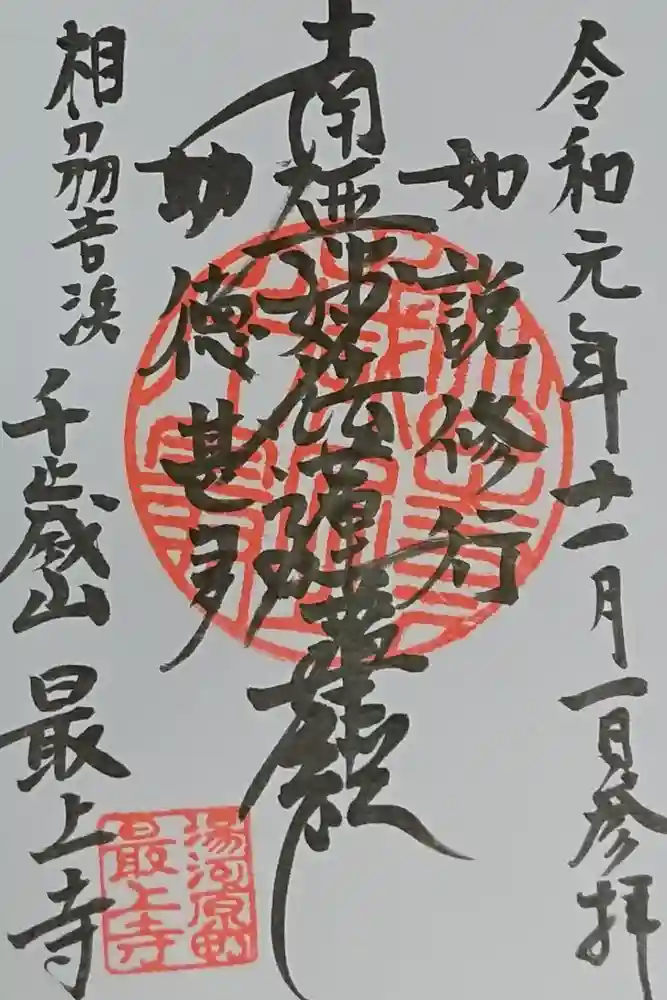 令和元年十一月一日参拝
如説修行
南無妙法蓮華經
功徳甚多
相刕吉浜 千歳山 最上寺
湯河原町
最上寺